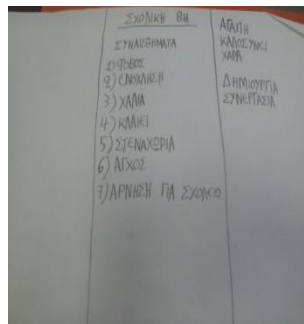 ΣΧΟΛΙΚΗ ΒΗ
ΣΥΝΑΙΣΘΗΜΑΤΑ
1) ΦΟΒΟΣ
2) ΕΝΟΧΛΗΣΗ
3) ΧΑΛΙΑ
4) ΚΛΑΙΕΙ
5) ΣΤΕΝΑΧΩΡΙΑ
6) ΑΓΧΟΣ
7) ΑΡΝΗΣΗ ΓΙΑ ΣΧΟΛΕΙΟ
ΑΓΑΠΗ
ΚΑΛΟΣΥΝΗ
ΧΑΡΑ
ΔΗΜΙΟΥΡΓΙΑ
ΣΥΝΕΡΓΑΣΙΑ